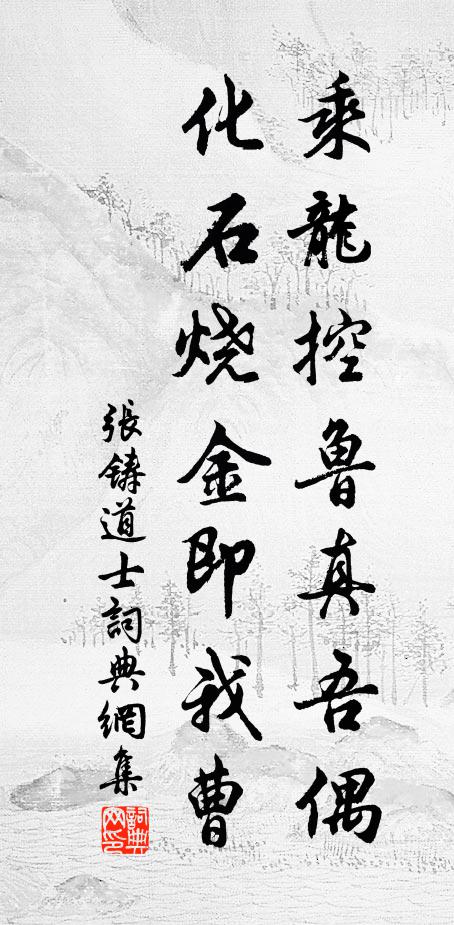 乘龍控魯真吾偶
化石烧金即我曹
張鑄道士詞典網集
詞典网印